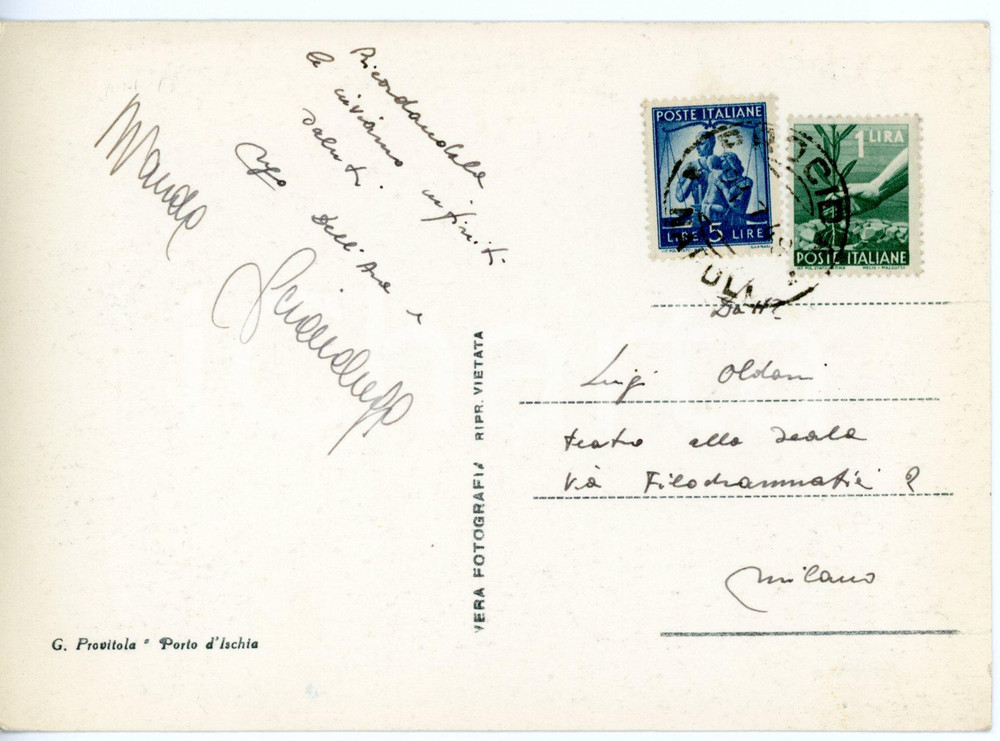 Ricordandola
le inviamo infiniti
saluti.
Ugo Dell'Ara e
Wanda Sciaccaluga
POSTE ITALIANE
LIRE 5 LIRE
1 LIRA
POSTE ITALIANE
PROCIDA
NAPOLI
Luigi Oldani
teatro alla Scala
Via Filodrammatici 2
Milano
VERA FOTOGRAFIA RIPR. VIETATA
G. Provitola - Porto d'Ischia